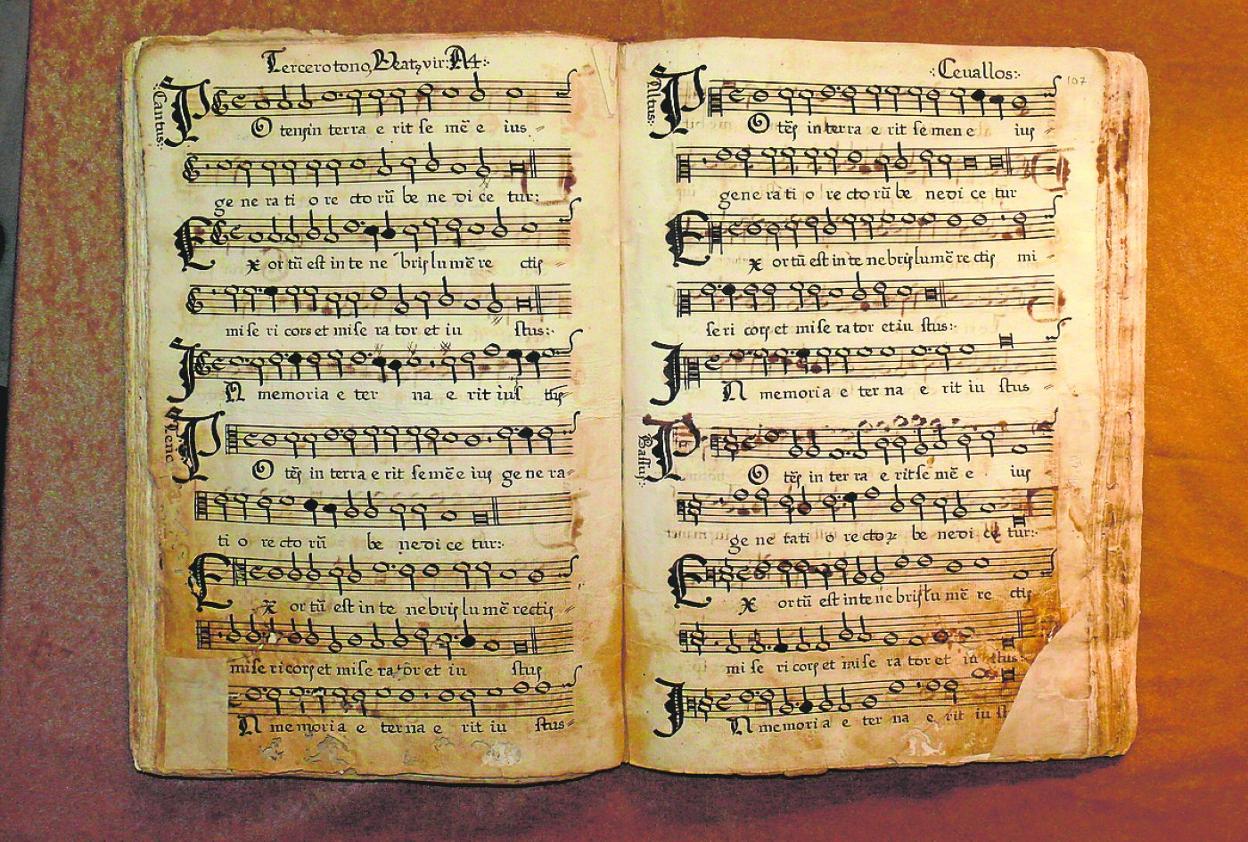 Tercero tono, Beatꝯ vir: A4:
:Cantus:
P O tensin terra e rit se mẽ e ius
ge ne ra ti o re cto rũ be ne di ce tur:
E x or tũ est in te ne bris lu mẽ re ctis
mi se ri cors et mise ra tor et iu stus:
I N memoria e ter na e rit ius
Tenor
P O tẽs in terra e rit se mẽ e ius ge ne ra
ti o re cto rũ be ne di ce tur:
E x or tũ est in te ne bris lu mẽ rectis
mi se ri cors et mise ra tor et iu stus
N memoria e ter na e rit iu stus
:Ceuallos:
107
Altus:
P O tẽs in terra e rit se men e ius
gene ra ti o re cto rũ be ne di ce tur
E x or tũ est in te ne bris lu mẽ re ctis mi
se ri cors et mise ra tor et iu stus:
I N memoria e ter na e rit iu stus
Bassus:
P O tẽs in ter ra e rit se mẽ e ius
ge ne rati o re ctoꝝ be ne di ce tur:
E x or tũ est in te ne bris lu mẽ re ctis
mi se ri cors et mi se ra tor et iu stus:
I N memori a e ter na e rit iu